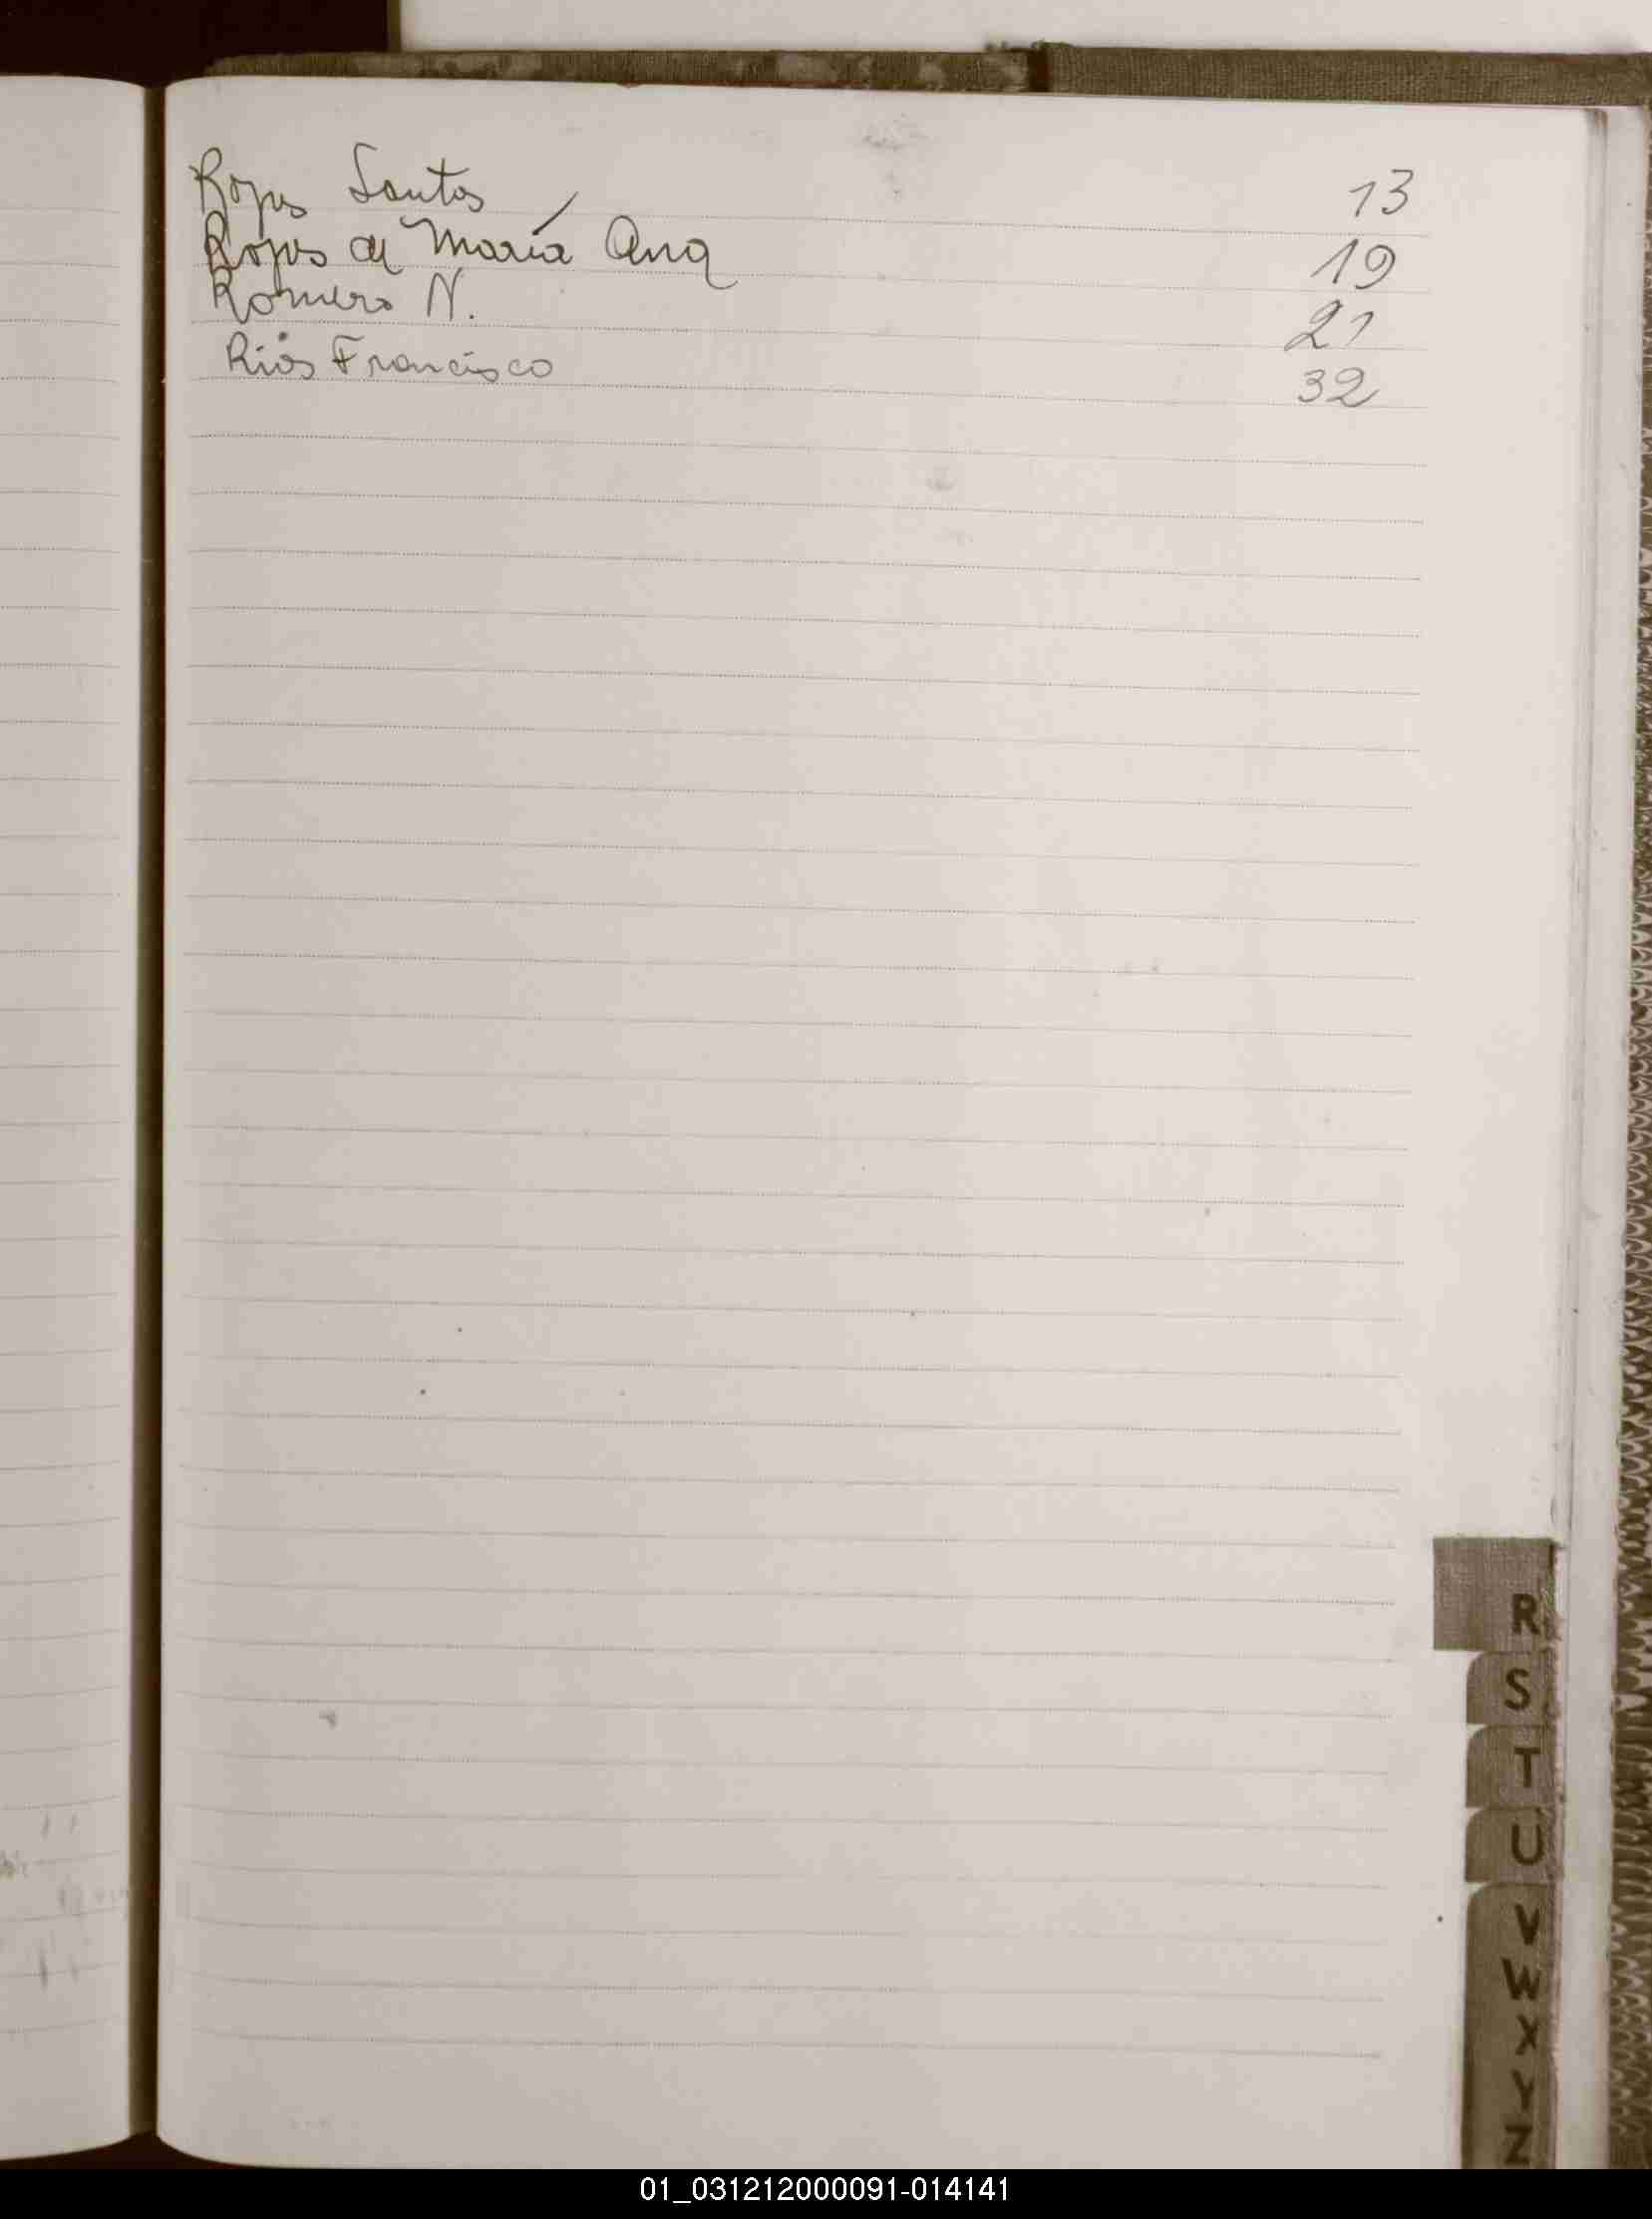 Rojas Santos 13
Rojas de María Ana 19
Romero N. 21
Ríos Francisco 32
R
S
T
U
V
W
X
Y
Z
01_031212000091-014141